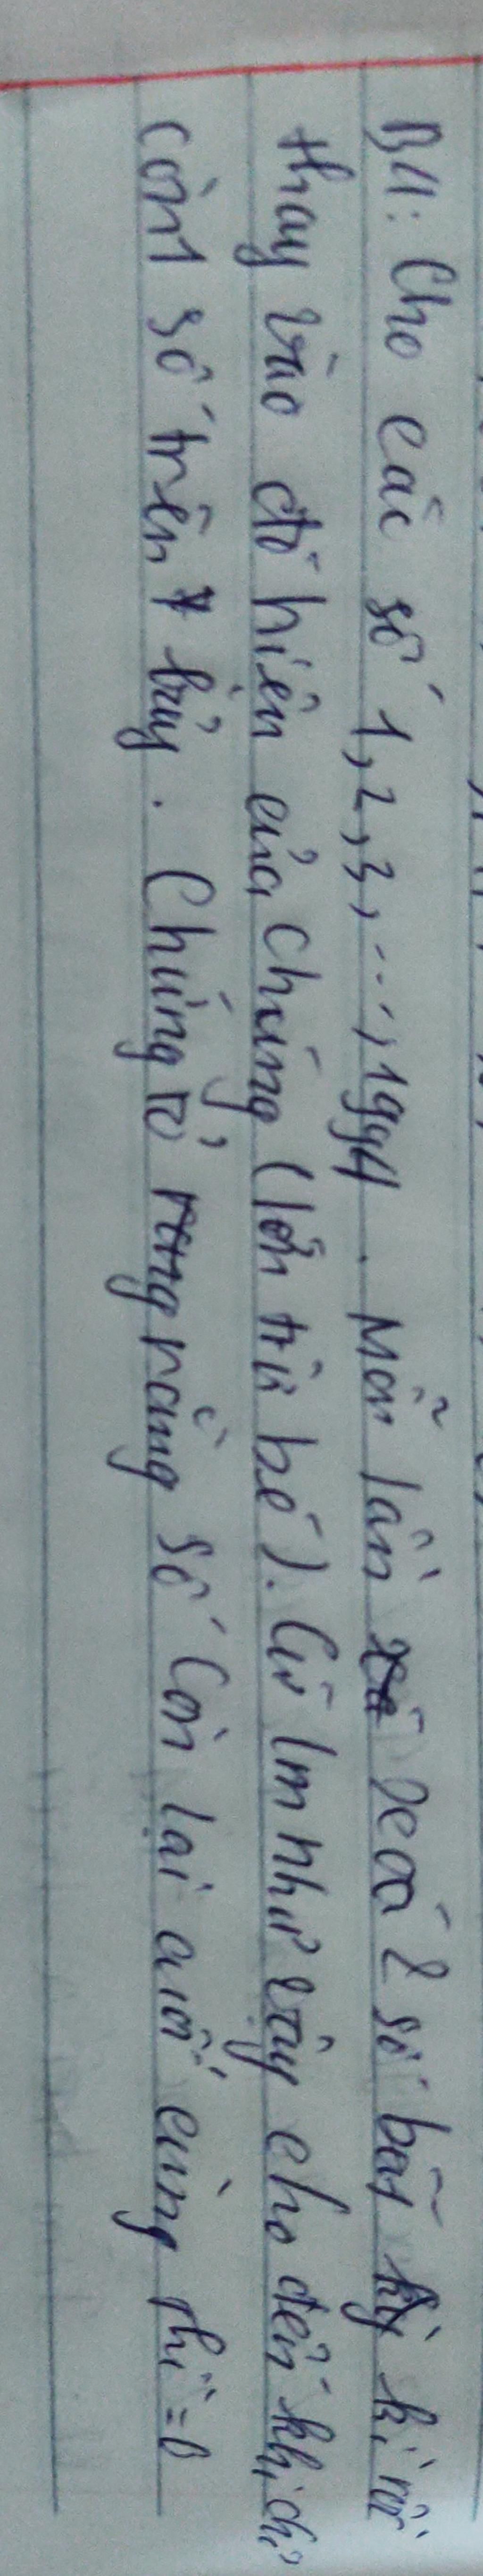 B4: Cho các số 1,2,3,...,1994. Mỗi lần xoá 2 số bất kỳ kì rồi
thay vào đó hiệu của chúng (lớn trừ bé). Cứ lm như vậy cho đến khi chỉ
còn 1 số trên bảng. Chứng tỏ rằng số còn lại cuối cùng thì = 0